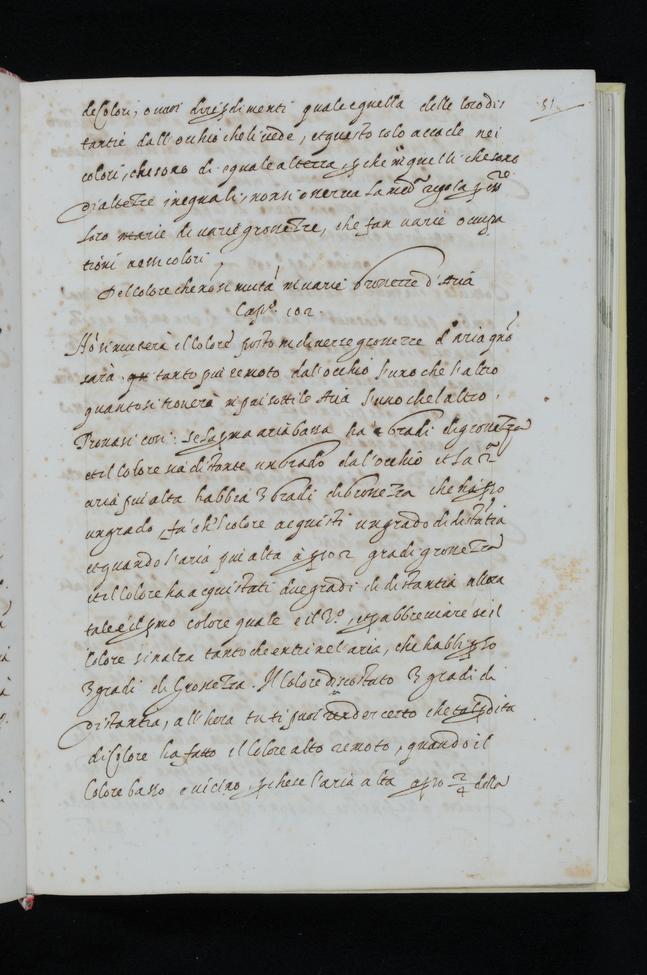 51
de colori, o uari diresdimenti quale e quella delle loro dis
tantie dall'occhio che li uede, et questo solo accade nei
colori, che sono di eguale alterra, p che in quelli che sono
d'altezze ineguali, non si osserua la med.a regola p
loro uarie di uarie grossezze, che fan uarie occupa
tioni nessi colori
Del colore che nō si muta in uarie grossezze d'Aria
Cap.o 102
Nō si muterà il colore posto in diuerse grossezze d'aria qnō
sarà tanto piu remoto dal'occhio l'uno che l'altro
quanto si trouerà in piu sottile Aria l'uno che l'altro.
Prouasi cosi: se la pma aria bassa ha 4 gradi di grossezza
et il colore sia distante un grado dal'occhio et la 2.a
aria piu alta habbia 3 gradi di grossezza che ha pso
un grado, fa ch'l colore acquisti un grado di distātia
et quando l'aria piu alta à pso 2 gradi grossezza
et il colore ha acquistati due gradi di distantia allora
tale e il pmo colore quale e il 3.o, et p abbreuiare se il
Colore s'inalza tanto che entri nel'aria, che habbi pso
3 gradi di Grossezza. Il colore discostato 3 gradi di
Distantia, all'hora tu ti puoi render certo che tal pdita
di Colore ha fatto il Colore alto remoto, quando il
Colore basso e uicino, p che se l'aria alta a pso 2/4 della